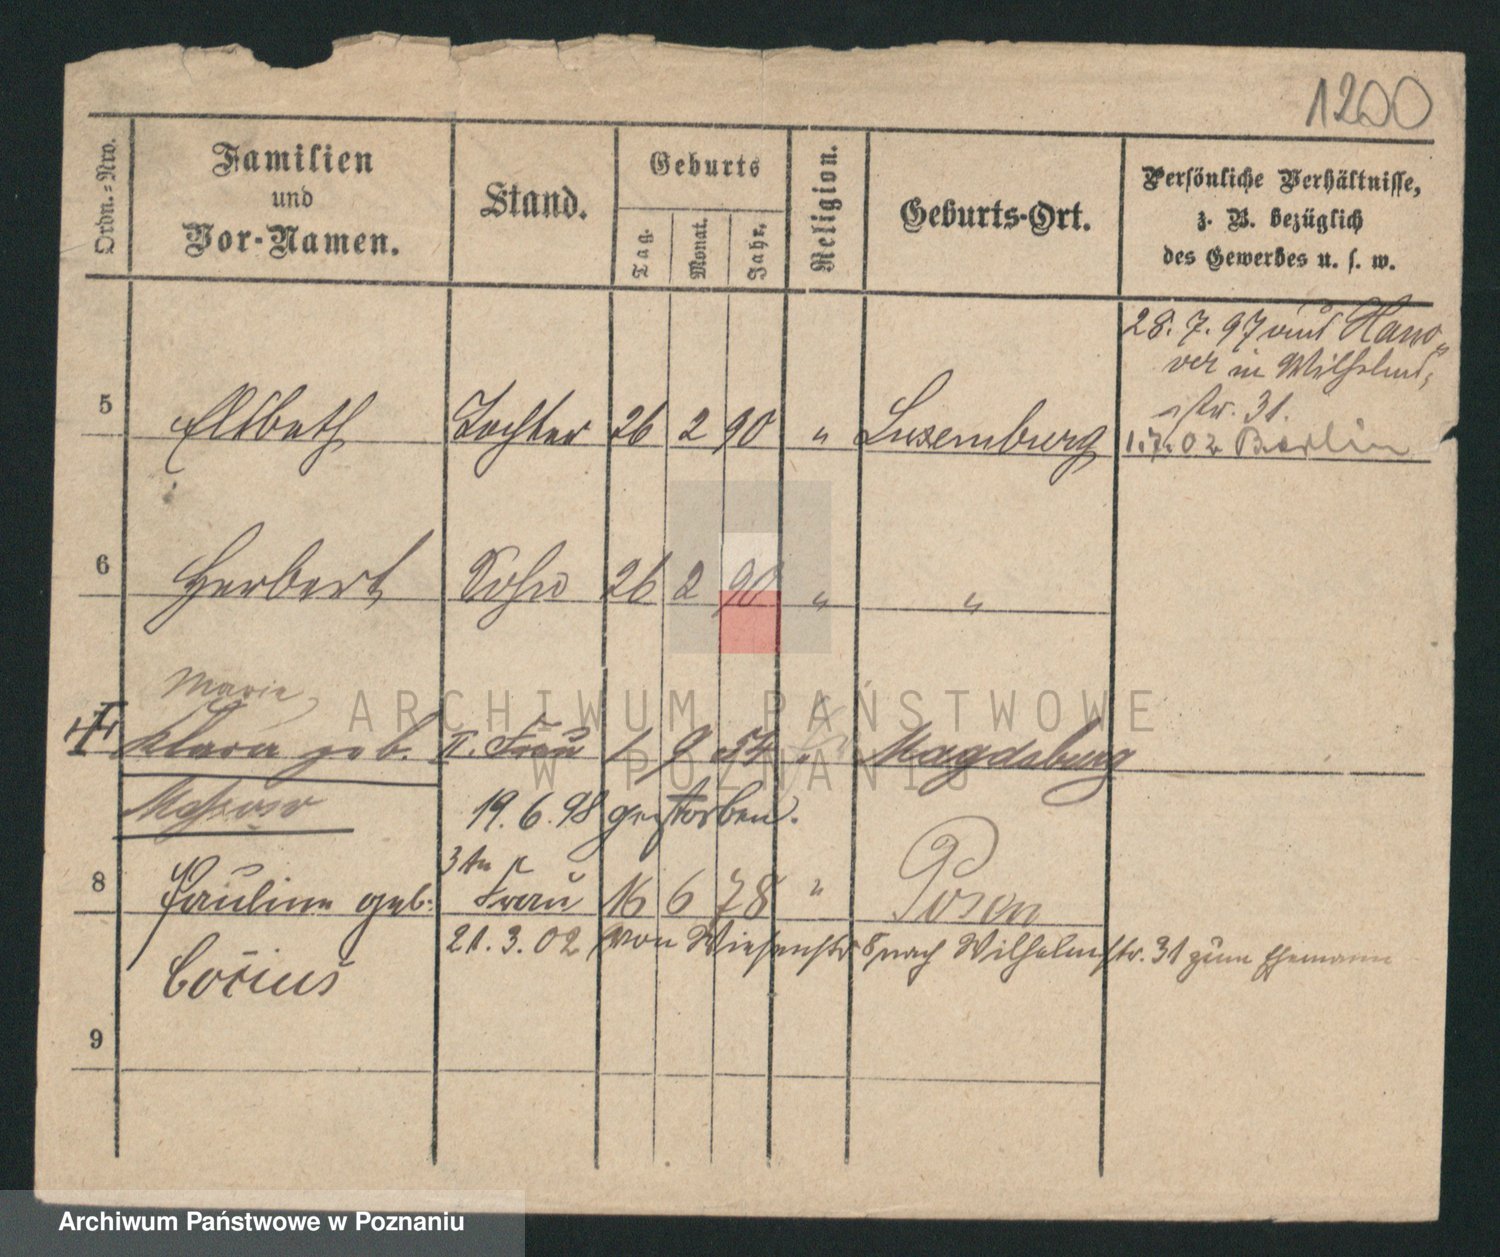 1200
Ordn.=Nro.
Familien
und
Vor-Namen.
Stand.
Geburts
Tag.
Monat.
Jahr.
Religion.
Geburts-Ort.
Persönliche Verhältnisse,
z. B. bezüglich
des Gewerbes u. s. w.
28. 7. 97 aus Hano-
ver in Wilhelms,
str. 31.
5 Elsbeth Tochter 26 2 90 " Luxemburg 1.7.02 Berlin
6 Herbert Sohn 26 2 90 " "
Marie
Klara geb. II. Frau 1 9 54 " Magdeburg
19. 6. 98 gestorben.
3te
8 Pauline geb. Frau 16 6 78 " Posen
21. 3. 02 von Wiesenstr 8 nach Wilhelmstr. 31 zum Ehemann
9
ARCHIWUM PAŃSTWOWE
W POZNANIU
Archiwum Państwowe w Poznaniu